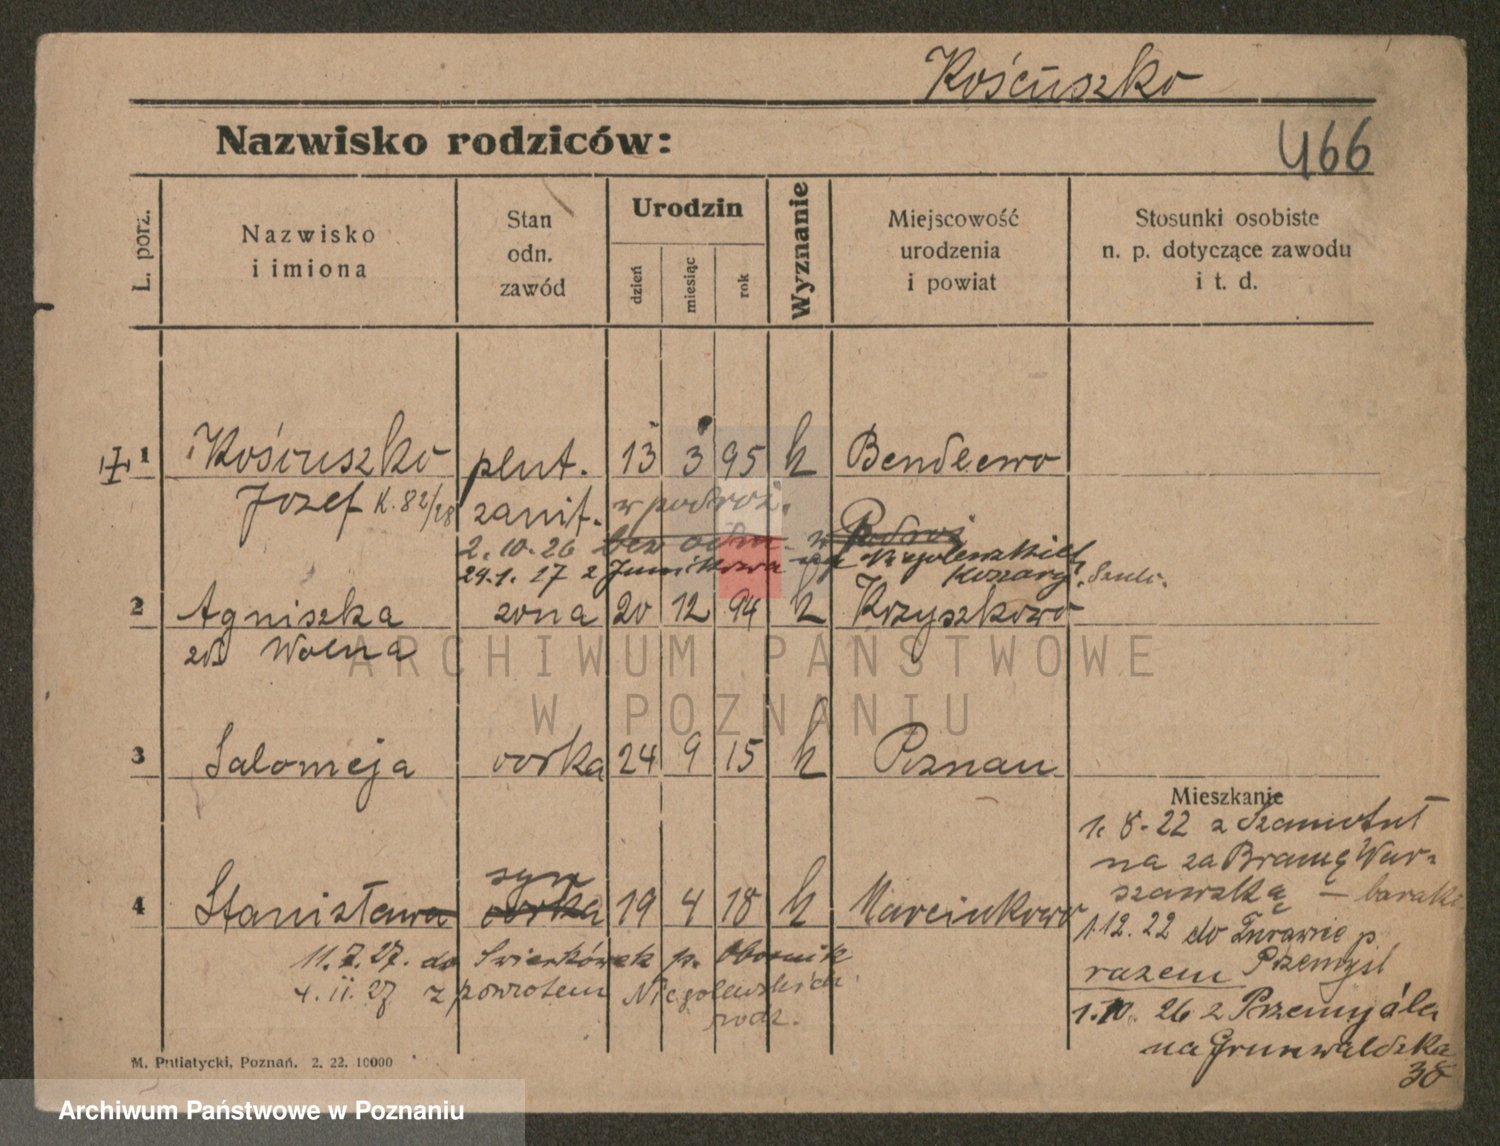 Kościuszko
Nazwisko rodziców:
466
L. porz.
Nazwisko
i imiona
Stan
odn.
zawód
Urodzin
dzień
miesiąc
rok
Wyznanie
Miejscowość
urodzenia
i powiat
Stosunki osobiste
n. p. dotyczące zawodu
i t. d.
1 Kościuszko plut. 13 3 95 k Bendlewo
Józef K. 82/28 sanit. w podróż.
2. 10. 26 bez odm. w Podróż
24. 1. 27 z Junikowa na Niegolewskich
Koszary.
2 Agniszka żona 20 12 94 k Krzyszkowo
zd. Wolna
ARCHIWUM PAŃSTWOWE
W POZNANIU
3 Salomeja córka 24 9 15 k Poznań
Mieszkanie
1. 8. 22 z Szamotuł
na za Bramę War-
szawską – baraki
syn
4 Stanisława córka 19 4 18 k Marcinkowo
1.12. 22 do Żurawic p
Przemyśl
razem
11.7.27. do Świerkówek p. Obornik
4. II. 27 z powrotem Niegolewskich
rodz.
1. 10. 26 z Przemyśla
na Grunwaldzka
38
M. Putiatycki, Poznań. 2. 22. 10000
Archiwum Państwowe w Poznaniu